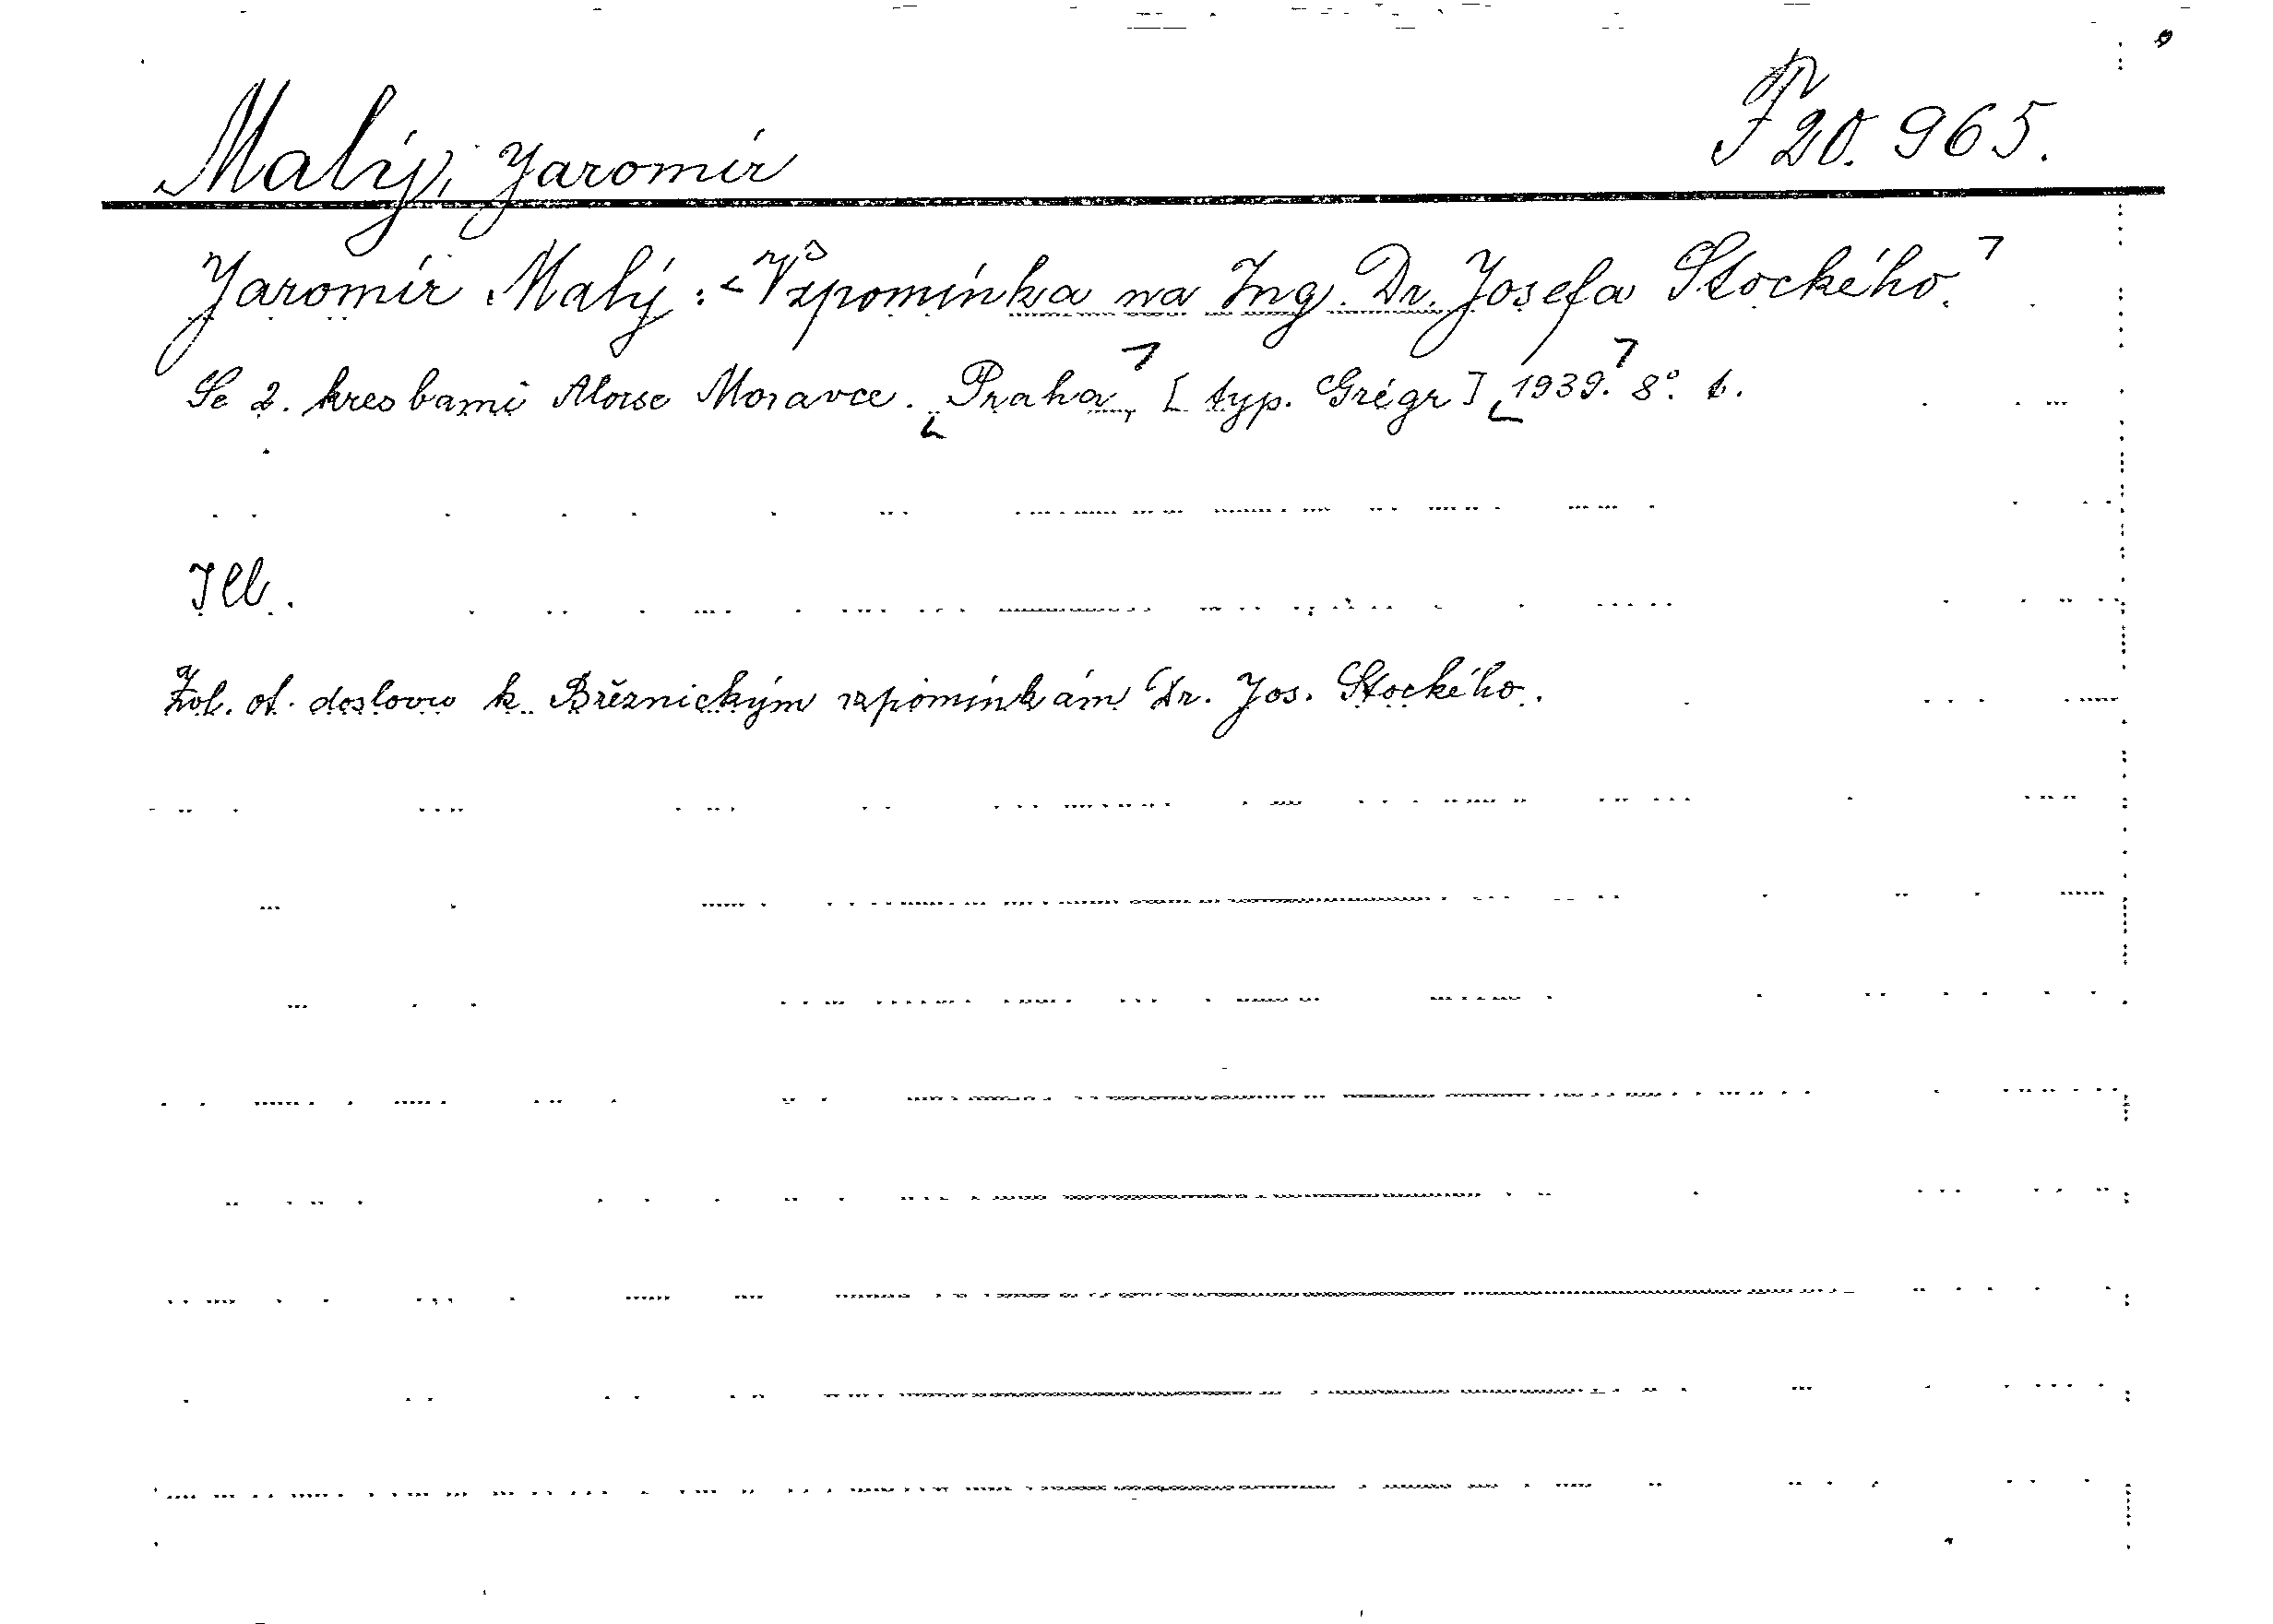 Malý, Jaromír
F 20.965.
Jaromír Malý: Vzpomínka na Ing. Dr. Josefa Stockého.
Se 2. kresbami Aloise Moravce. Praha, [typ. Grégr] 1939. 8°. t.
Ill.
Zvl. ot. doslovu k Březnickým vzpomínkám Dr. Jos. Stockého.